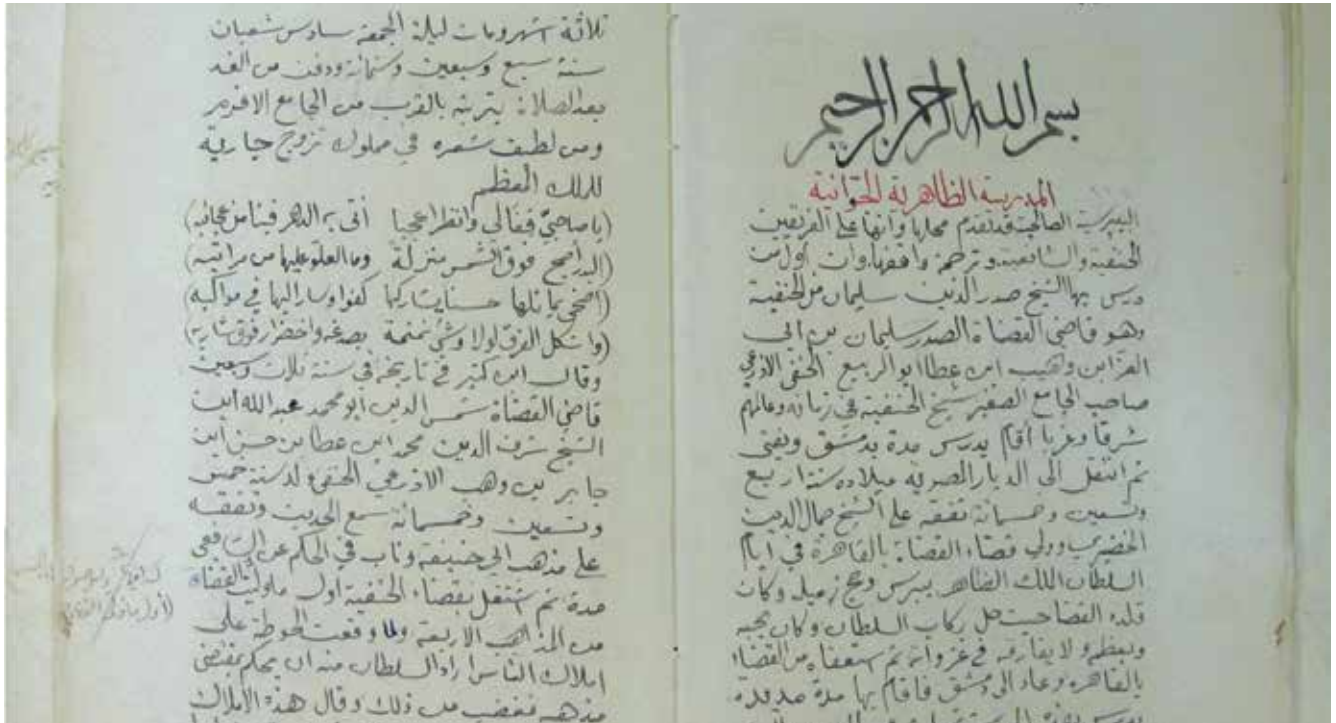 بسم الله الرحمن الرحيم
المدرسة الظاهرية الجوانية
البيبرسية الصالحية قد تقدم محلها وانها على الفريقين
الحنفية والشافعية وترجمة واقفها وان اول من
درس بها الشيخ صدر الدين سليمان من الحنفية
وهو قاضي القضاة الصدر سليمان بن ابي
العز ابن وهيب ابن عطا ابو الربيع الحنفي الاذرعي
صاحب الجامع الصغير شيخ الحنفية في زمانه وعالمهم
شرقا وغربا اقام يدرس مدة بدمشق ويفتي
ثم انتقل الى الديار المصرية ميلاده سنة اربع
وتسعين وخمسمائة تفقه على الشيخ جمال الدين
الحصيري وولي قضاء القضاة بالقاهرة في ايام
السلطان الملك الظاهر بيبرس وحج زميله وكان
قلده القضا حيث حل ركاب السلطان وكان يحبه
ويعظمه ولا يفارقه في غزواته ثم استعفاه من القضاء
بالقاهرة وعاد الى دمشق فاقام بها مدة مديدة
ثلاثة اشهر ومات ليلة الجمعة سادس شعبان
سنة سبع وسبعين وستمائة ودفن من الغد
بعد الصلاة بتربته بالقرب من الجامع الافرم
ومن لطيف شعره في مملوك تزوج جارية
للملك المعظم
(يا صاحبيّ قفا لي وانظرا عجبا اتى به الدهر فينا من عجائبه)
(البدر اصبح فوق الشمس منزلة وما العلو عليها من مراتبه)
(اضحى يماثلها حسنا يشاركها كفوا وسار اليها في مواكبه)
(واشكل الفرق لولا وشي نمنمة بصدغه واخضرار فوق شاربه)
وقال ابن كثير في تاريخه في سنة ثلاث وسبعين
قاضي القضاة شمس الدين ابو محمد عبد الله ابن
الشيخ شرف الدين محمد ابن عطا بن حسن ابن
جابر بن وهب الاذرعي الحنفي ولد سنة خمس
وتسعين وخمسمائة سمع الحديث وتفقه
على مذهب ابي حنيفة وناب في الحكم عن الشافعي
مدة ثم استقل بقضاء الحنفية اول ما وليت القضاة
من المذاهب الاربعة ولما وقعت الحوطة على
املاك الناس اراد السلطان منه ان يحكم بمقتضى
مذهبه فغضب من ذلك وقال هذه الاملاك